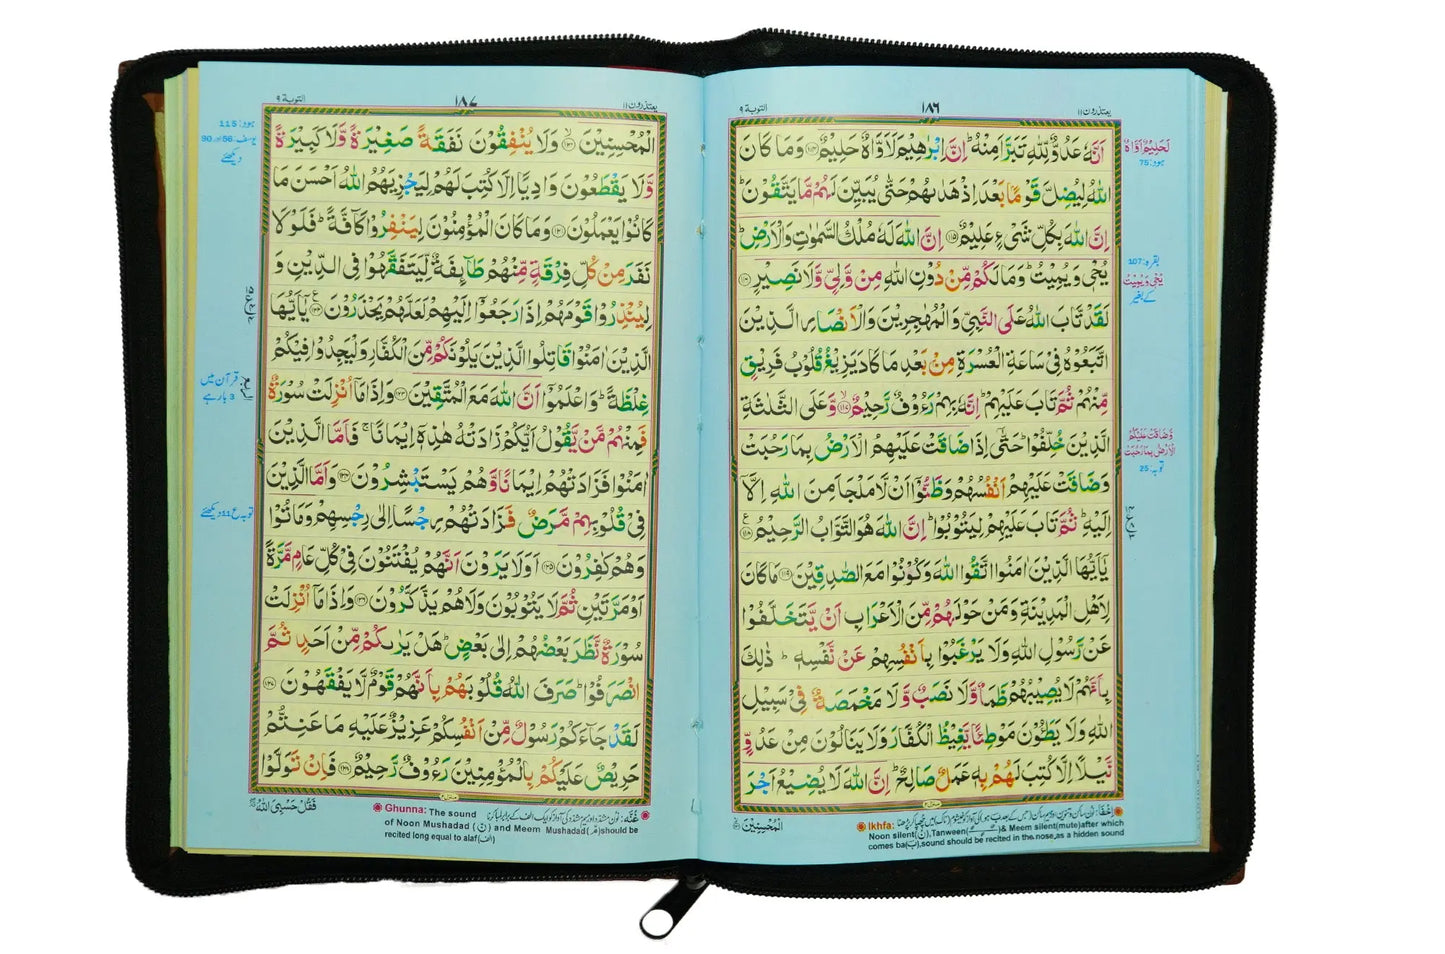 يعتذرون ١١
١٨٦
التوبة ٩
اَنَّهٗ عَدُوٌّ لِّلّٰهِ تَبَرَّاَ مِنْهُ ؕ اِنَّ اِبْرٰهِيْمَ لَاَوَّاهٌ حَلِيْمٌ ﴿۱۱۴﴾ وَمَا كَانَ
اللّٰهُ لِيُضِلَّ قَوْمًۢا بَعْدَ اِذْ هَدٰىهُمْ حَتّٰى يُبَيِّنَ لَهُمْ مَّا يَتَّقُوْنَ ؕ
اِنَّ اللّٰهَ بِكُلِّ شَىْءٍ عَلِيْمٌ ﴿۱۱۵﴾ اِنَّ اللّٰهَ لَهٗ مُلْكُ السَّمٰوٰتِ وَالْاَرْضِ ؕ
يُحْىٖ وَيُمِيْتُ ؕ وَمَا لَكُمْ مِّنْ دُوْنِ اللّٰهِ مِنْ وَّلِىٍّ وَّلَا نَصِيْرٍ ﴿۱۱۶﴾
لَقَدْ تَّابَ اللّٰهُ عَلَى النَّبِىِّ وَالْمُهٰجِرِيْنَ وَالْاَنْصَارِ الَّذِيْنَ
اتَّبَعُوْهُ فِىْ سَاعَةِ الْعُسْرَةِ مِنْۢ بَعْدِ مَا كَادَ يَزِيْغُ قُلُوْبُ فَرِيْقٍ
مِّنْهُمْ ثُمَّ تَابَ عَلَيْهِمْ ؕ اِنَّهٗ بِهِمْ رَءُوْفٌ رَّحِيْمٌ ﴿۱۱۷﴾ وَّعَلَى الثَّلٰثَةِ
الَّذِيْنَ خُلِّفُوْا ؕ حَتّٰۤى اِذَا ضَاقَتْ عَلَيْهِمُ الْاَرْضُ بِمَا رَحُبَتْ
وَضَاقَتْ عَلَيْهِمْ اَنْفُسُهُمْ وَظَنُّوْۤا اَنْ لَّا مَلْجَاَ مِنَ اللّٰهِ اِلَّاۤ
اِلَيْهِ ؕ ثُمَّ تَابَ عَلَيْهِمْ لِيَتُوْبُوْا ؕ اِنَّ اللّٰهَ هُوَ التَّوَّابُ الرَّحِيْمُ ﴿۱۱۸﴾
يٰۤاَيُّهَا الَّذِيْنَ اٰمَنُوا اتَّقُوا اللّٰهَ وَكُوْنُوْا مَعَ الصّٰدِقِيْنَ ﴿۱۱۹﴾ مَا كَانَ
لِاَهْلِ الْمَدِيْنَةِ وَمَنْ حَوْلَهُمْ مِّنَ الْاَعْرَابِ اَنْ يَّتَخَلَّفُوْا
عَنْ رَّسُوْلِ اللّٰهِ وَلَا يَرْغَبُوْا بِاَنْفُسِهِمْ عَنْ نَّفْسِهٖ ؕ ذٰلِكَ
بِاَنَّهُمْ لَا يُصِيْبُهُمْ ظَمَاٌ وَّلَا نَصَبٌ وَّلَا مَخْمَصَةٌ فِىْ سَبِيْلِ
اللّٰهِ وَلَا يَطَـُٔوْنَ مَوْطِئًا يَّغِيْظُ الْكُفَّارَ وَلَا يَنَالُوْنَ مِنْ عَدُوٍّ
نَّيْلًا اِلَّا كُتِبَ لَهُمْ بِهٖ عَمَلٌ صَالِحٌ ؕ اِنَّ اللّٰهَ لَا يُضِيْعُ اَجْرَ
الْمُحْسِنِيْنَ
لَحَلِيْمٌ اَوَّاهٌ
ہود: 75
بقرہ: 107
يُحْيٖ وَيُمِيْتُ
کے بغیر
وَّضَاقَتْ عَلَيْكُمُ
الْاَرْضُ بِمَا رَحُبَتْ
توبہ: 25
Ikhfa:
Noon silent(نْ),Tanween(ـًـٍـٌ)& Meem silent(mute)after which
comes ba(ب),sound should be recited in the nose,as a hidden sound
يعتذرون ١١
١٨٧
التوبة ٩
الْمُحْسِنِيْنَ ﴿۱۲۰﴾ وَلَا يُنْفِقُوْنَ نَفَقَةً صَغِيْرَةً وَّلَا كَبِيْرَةً
وَّلَا يَقْطَعُوْنَ وَادِيًا اِلَّا كُتِبَ لَهُمْ لِيَجْزِيَهُمُ اللّٰهُ اَحْسَنَ مَا
كَانُوْا يَعْمَلُوْنَ ﴿۱۲۱﴾ وَمَا كَانَ الْمُؤْمِنُوْنَ لِيَنْفِرُوْا كَآفَّةً ؕ فَلَوْلَا
نَفَرَ مِنْ كُلِّ فِرْقَةٍ مِّنْهُمْ طَآئِفَةٌ لِّيَتَفَقَّهُوْا فِى الدِّيْنِ وَ
لِيُنْذِرُوْا قَوْمَهُمْ اِذَا رَجَعُوْۤا اِلَيْهِمْ لَعَلَّهُمْ يَحْذَرُوْنَ ﴿۱۲۲﴾ يٰۤاَيُّهَا
الَّذِيْنَ اٰمَنُوْا قَاتِلُوا الَّذِيْنَ يَلُوْنَكُمْ مِّنَ الْكُفَّارِ وَلْيَجِدُوْا فِيْكُمْ
غِلْظَةً ؕ وَاعْلَمُوْۤا اَنَّ اللّٰهَ مَعَ الْمُتَّقِيْنَ ﴿۱۲۳﴾ وَاِذَا مَاۤ اُنْزِلَتْ سُوْرَةٌ
فَمِنْهُمْ مَّنْ يَّقُوْلُ اَيُّكُمْ زَادَتْهُ هٰذِهٖۤ اِيْمَانًا ۚ فَاَمَّا الَّذِيْنَ
اٰمَنُوْا فَزَادَتْهُمْ اِيْمَانًا وَّهُمْ يَسْتَبْشِرُوْنَ ﴿۱۲۴﴾ وَاَمَّا الَّذِيْنَ
فِىْ قُلُوْبِهِمْ مَّرَضٌ فَزَادَتْهُمْ رِجْسًا اِلٰى رِجْسِهِمْ وَمَاتُوْا
وَهُمْ كٰفِرُوْنَ ﴿۱۲۵﴾ اَوَلَا يَرَوْنَ اَنَّهُمْ يُفْتَنُوْنَ فِىْ كُلِّ عَامٍ مَّرَّةً
اَوْ مَرَّتَيْنِ ثُمَّ لَا يَتُوْبُوْنَ وَلَا هُمْ يَذَّكَّرُوْنَ ﴿۱۲۶﴾ وَاِذَا مَاۤ اُنْزِلَتْ
سُوْرَةٌ نَّظَرَ بَعْضُهُمْ اِلٰى بَعْضٍ ؕ هَلْ يَرٰىكُمْ مِّنْ اَحَدٍ ثُمَّ
انْصَرَفُوْا ؕ صَرَفَ اللّٰهُ قُلُوْبَهُمْ بِاَنَّهُمْ قَوْمٌ لَّا يَفْقَهُوْنَ ﴿۱۲۷﴾
لَقَدْ جَآءَكُمْ رَسُوْلٌ مِّنْ اَنْفُسِكُمْ عَزِيْزٌ عَلَيْهِ مَا عَنِتُّمْ
حَرِيْصٌ عَلَيْكُمْ بِالْمُؤْمِنِيْنَ رَءُوْفٌ رَّحِيْمٌ ﴿۱۲۸﴾ فَاِنْ تَوَلَّوْا
فَقُلْ حَسْبِىَ اللّٰهُ
ہود: 115
یوسف: 56 اور 90
دیکھئے
قرآن میں
3 بار ہے
توبہ ع 11 دیکھئے
Ghunna: The sound
of Noon Mushadad (نّ) and Meem Mushadad(مّ)should be
recited long equal to alaf(الف)